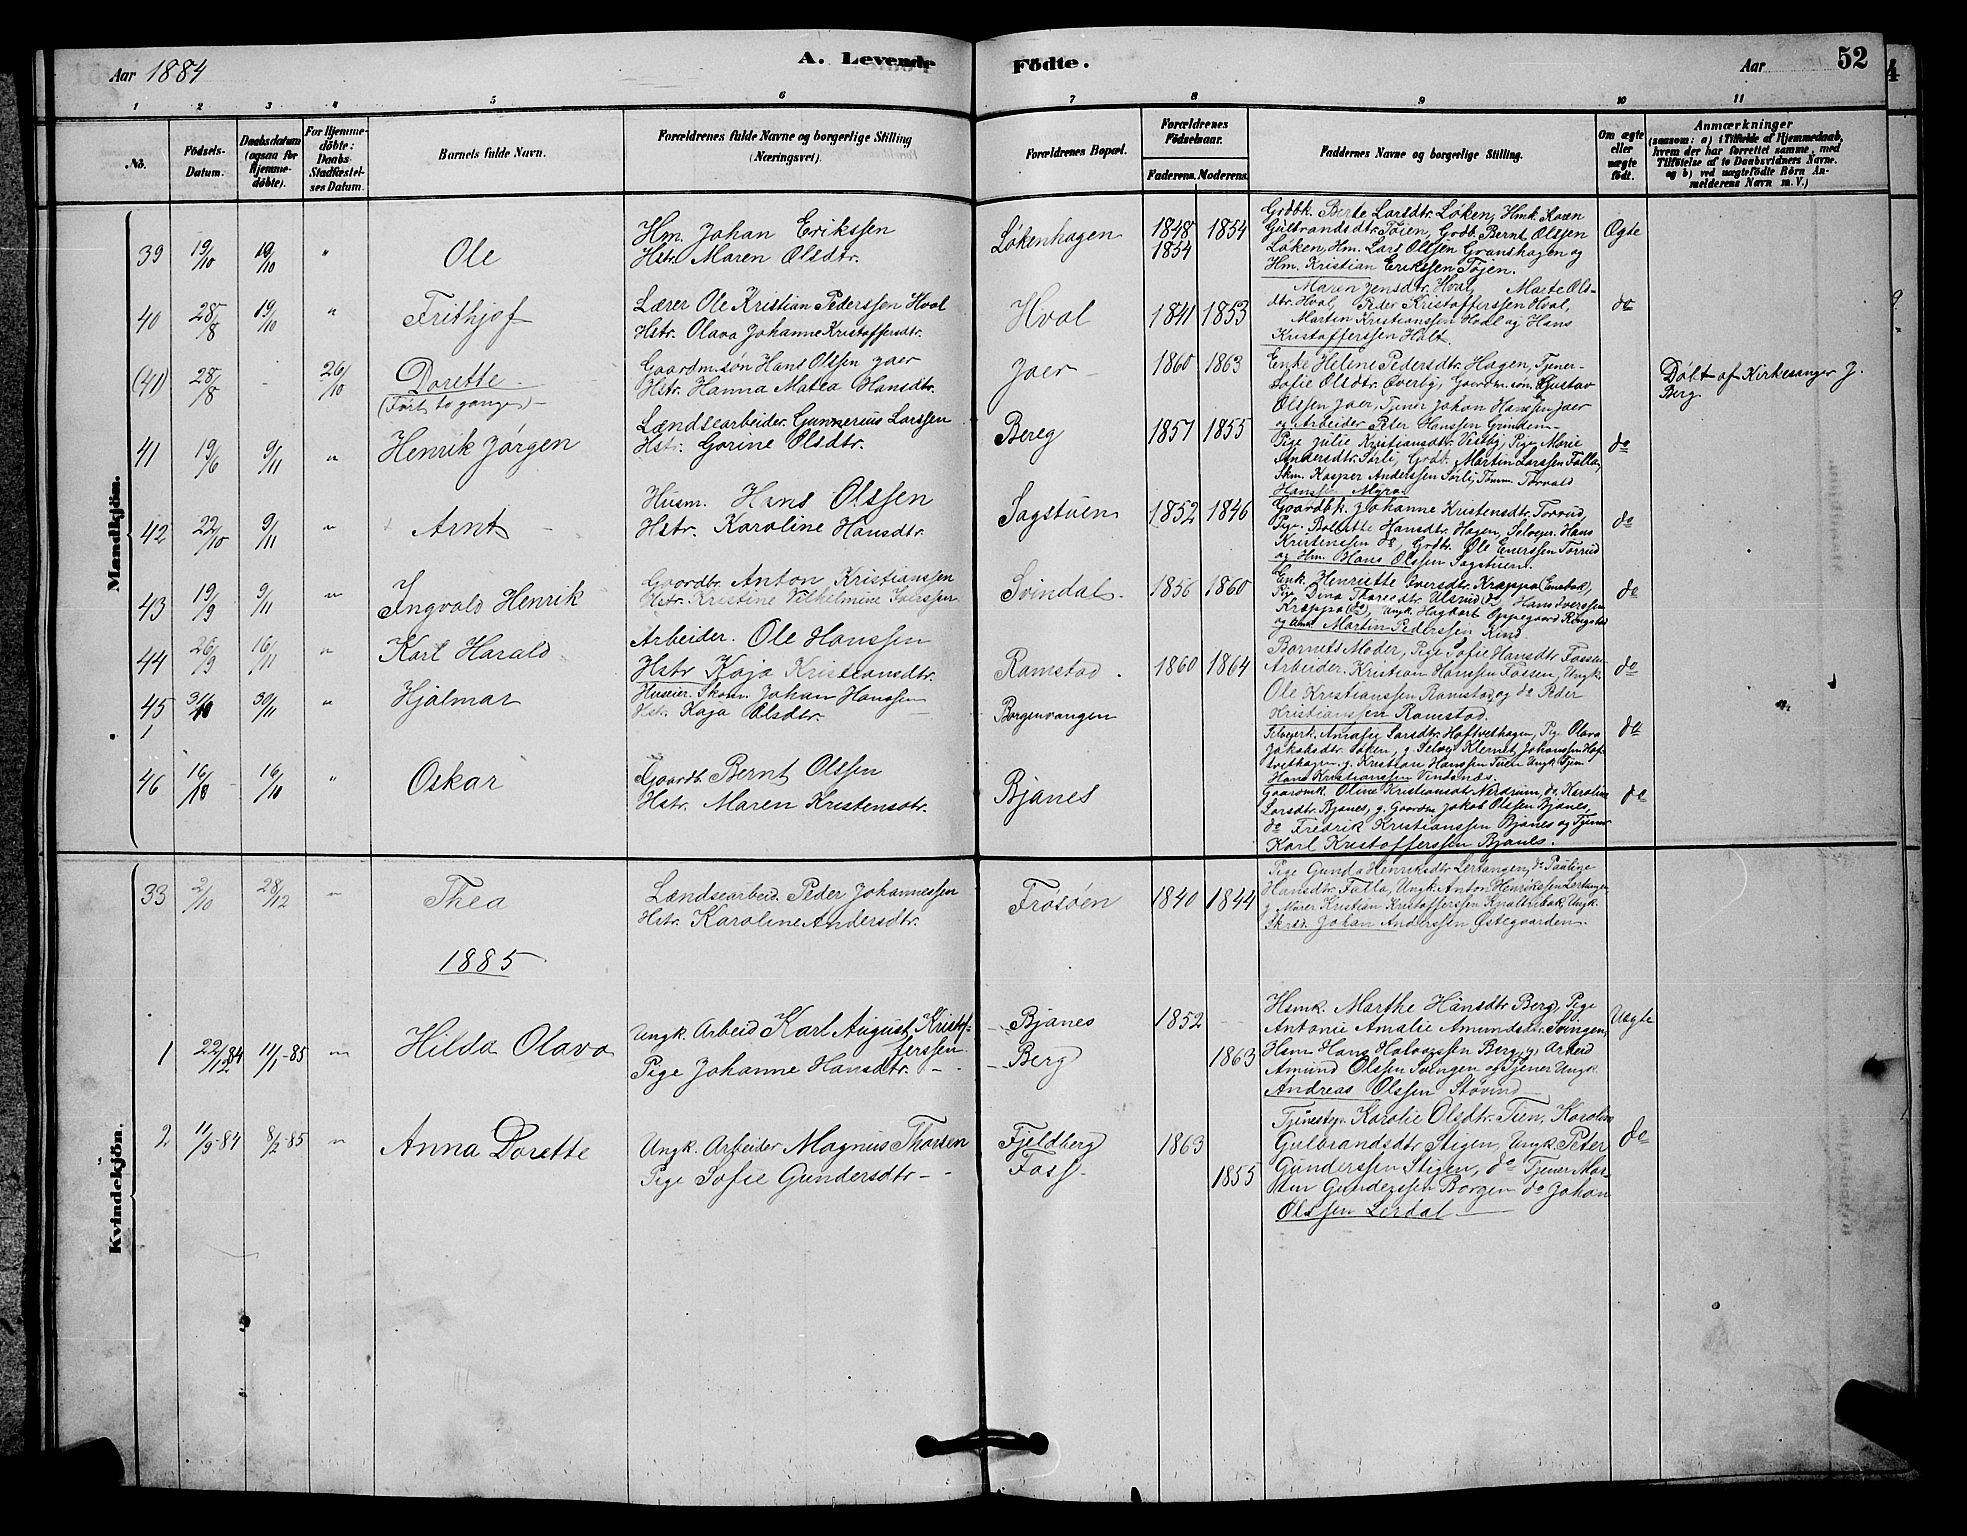 Aar 1884
A. Levende Födte.
Aar
52
1 2 3 4 5 6 7 8 9 10 11
No.
Födsels-Datum.
Daabsdatum (ogsaa for Hjemme-döbte).
For Hjemme-döbte: Daabs-Stadfæstel-ses Datum.
Barnets fulde Navn.
Forældrenes fulde Navne og borgerlige Stilling (Næringsvei).
Forældrenes Bopæl.
Forældrenes Födselsaar.
Faderens. Moderens.
Faddernes Navne og borgerlige Stilling.
Om ægte eller uægte födt.
Anmærkninger
(saasom: a) i Tilfælde af Hjemmedaab,
hvem der har forrettet samme, med
Tilföielse af to Daabsvidners Navne.
og b) ved uægtefödte Börn An-
melderens Navn m. V.)
Mandkjön.
39 19/10 19/10 " Ole
Hm. Johan Erikssen
Hstr. Maren Olsdtr.
Løkenhagen 1848 1854
1854
Grdbk. Berte Larsdtr. Løken, Hmk. Karen
Gulbrandsdtr. Töien, Grdb. Bernt Olssen
Løken, Hm. Lars Olssen Granshagen og
Hm. Kristian Erikssen Töjen.
Ægte
40 28/8 19/10 " Frithjof
Lærer Ole Kristian Pederssen Hval
Hstr. Olava Johanne Kristoffersdtr.
Hval 1841 1853
Maren Jensdtr. Hval, Marte Ols-
dtr. Hval, Peder Kristofferssen Hval,
Martin Kristianssen Hval og Hans
Kristofferssen Holt.
do
(41) 28/8 - 26/10 Dorette
(Ført to gange)
Gaardm.søn Hans Olssen Jaer
Hstr. Hanna Matea Hansdtr.
Jaer 1860 1863
Enke Helene Pedersdtr. Hagen, Tjener-
Sofie Olsdtr. Overby, Gaardm.søn Gustav
Olssen Jaer, Tjener Johan Hanssen Jaer
og Arbeider Peter Hanssen Grinden
Döbt af Kirkesanger J.
Berg.
41 19/6 9/11 " Henrik Jørgen
Lændsearbeider. Gunnerius Larssen
Hstr. Gorine Olsdtr.
Bereg 1857 1855
Pige Julie Kristiansdtr. Visby, Pige Marie
Andersdtr. Sørli, Grdb. Martin Larssen Falla,
Skm. Kasper Anderssen Sørli, Tømm. Torvald
Hanssen Myra
do
42 22/10 9/11 " Arnt
Husm. Hans Olssen
Hstr. Karoline Hansdtr.
Sagstuen 1852 1846
Gaardbk. Johanne Kristensdtr. Torrud,
Pige Bollette Hansdtr. Hagen, Selvejer. Hans
Kristenssen do, Grdbr. Ole Enerssen Torrud
og Hm. Hans Olssen Sagstuen.
do
43 19/9 9/11 " Ingvald Henrik
Gaardbr. Anton Kristianssen
Hstr. Kristine Vilhelmine Iverssen
Svindal. 1856 1860
Enk. Henriette Iversdtr. Kræppa (Enebak),
Pige Dina Thoresdtr. Ulsrud do, Hans Iverssen
Kræppa (do), Ungk. Hagbart Oppegaard Ringstad
og Martin Pederssen Kind.
do
44 26/9 16/11 " Karl Harald
Arbeider. Ole Hanssen
Hstr Kaja Kristiansdtr.
Ramstad. 1860 1864
Barnets Moder, Pige Sofie Hansdtr Fossen
Arbeider. Kristian Hanssen Fossen, Ungk.
Ole Kristianssen Ramstad, og do Peder
Kristianssen Ramstad.
do
45 31/10 30/11 " Hjalmar
Huseier. Skom. Johan Hanssen
Hstr. Kaja Olsdtr.
Borgenvangen
Selvejerk. Amalie Larsdtr. Hofsvethagen, Pige Olava
Jakobsdtr. Løken, g. Selvej. Klemet Johanssen Hof-
svethagen, g. Kristian Hanssen Tuen Ungk Tjen
Hans Kristianssen Vindenæs.
do
46 16/10 16/10 " Oskar
Gaardb. Bernt Olssen
Hstr. Maren Kristensdtr.
Bjanes
Gaardmk. Oline Kristiansdtr Nerdrum, do. Karoline
Larsdtr. Bjanes, g. Gaardm. Jakob Olssen Bjanes,
do Fredrik Kristianssen Bjanes og Tjener
Karl Kristofferssen Bjanes.
do
Kvindekjön.
33 2/10 28/12 " Thea
Lændsearbeid. Peder Johannessen
Hstr. Karoline Andersdtr.
Frosøen 1840 1844
Pige Gunda Henriksdtr Lertangen, do Pauline
Hansdtr. Falla, Ungk. Anton Henrikssen Lertangen
g. Murer Kristian Kristofferssen Knaltribak, Ungk.
Skræd. Johan Anderssen Østegaarden.
1885
1 22/12 84 11/1-85 " Hilda Olava
Ungk. Arbeid Karl August Kristof-
ferssen
Pige Johanne Hansdtr. -
Bjanes
Berg
1852
1863
Hsmk. Marthe Hansdtr Berg, Pige
Antonie Amalie Amundsdtr. Svingen,
Hsm Hans Halvorssen Berg, g. Arbeid
Amund Olssen Svingen og Tjener Ungk.
Andreas Olssen Støvind
Uægte
2 11/9-84 8/2-85 " Anna Dorette
Ungk. Arbeider Magnus Thorsen
Pige Sofie Gundersdtr -
Fjeldberg
Foss -
1863
1855
Tjenestepi. Karolie Olsdtr. Tien, Karoline
Gulbrandsdtr. Stigen, Ungk. Peter
Gunderssen Stigen, do Tjener Mar-
tin Gunderssen Borgen do Johan
Olssen Lerdal
do